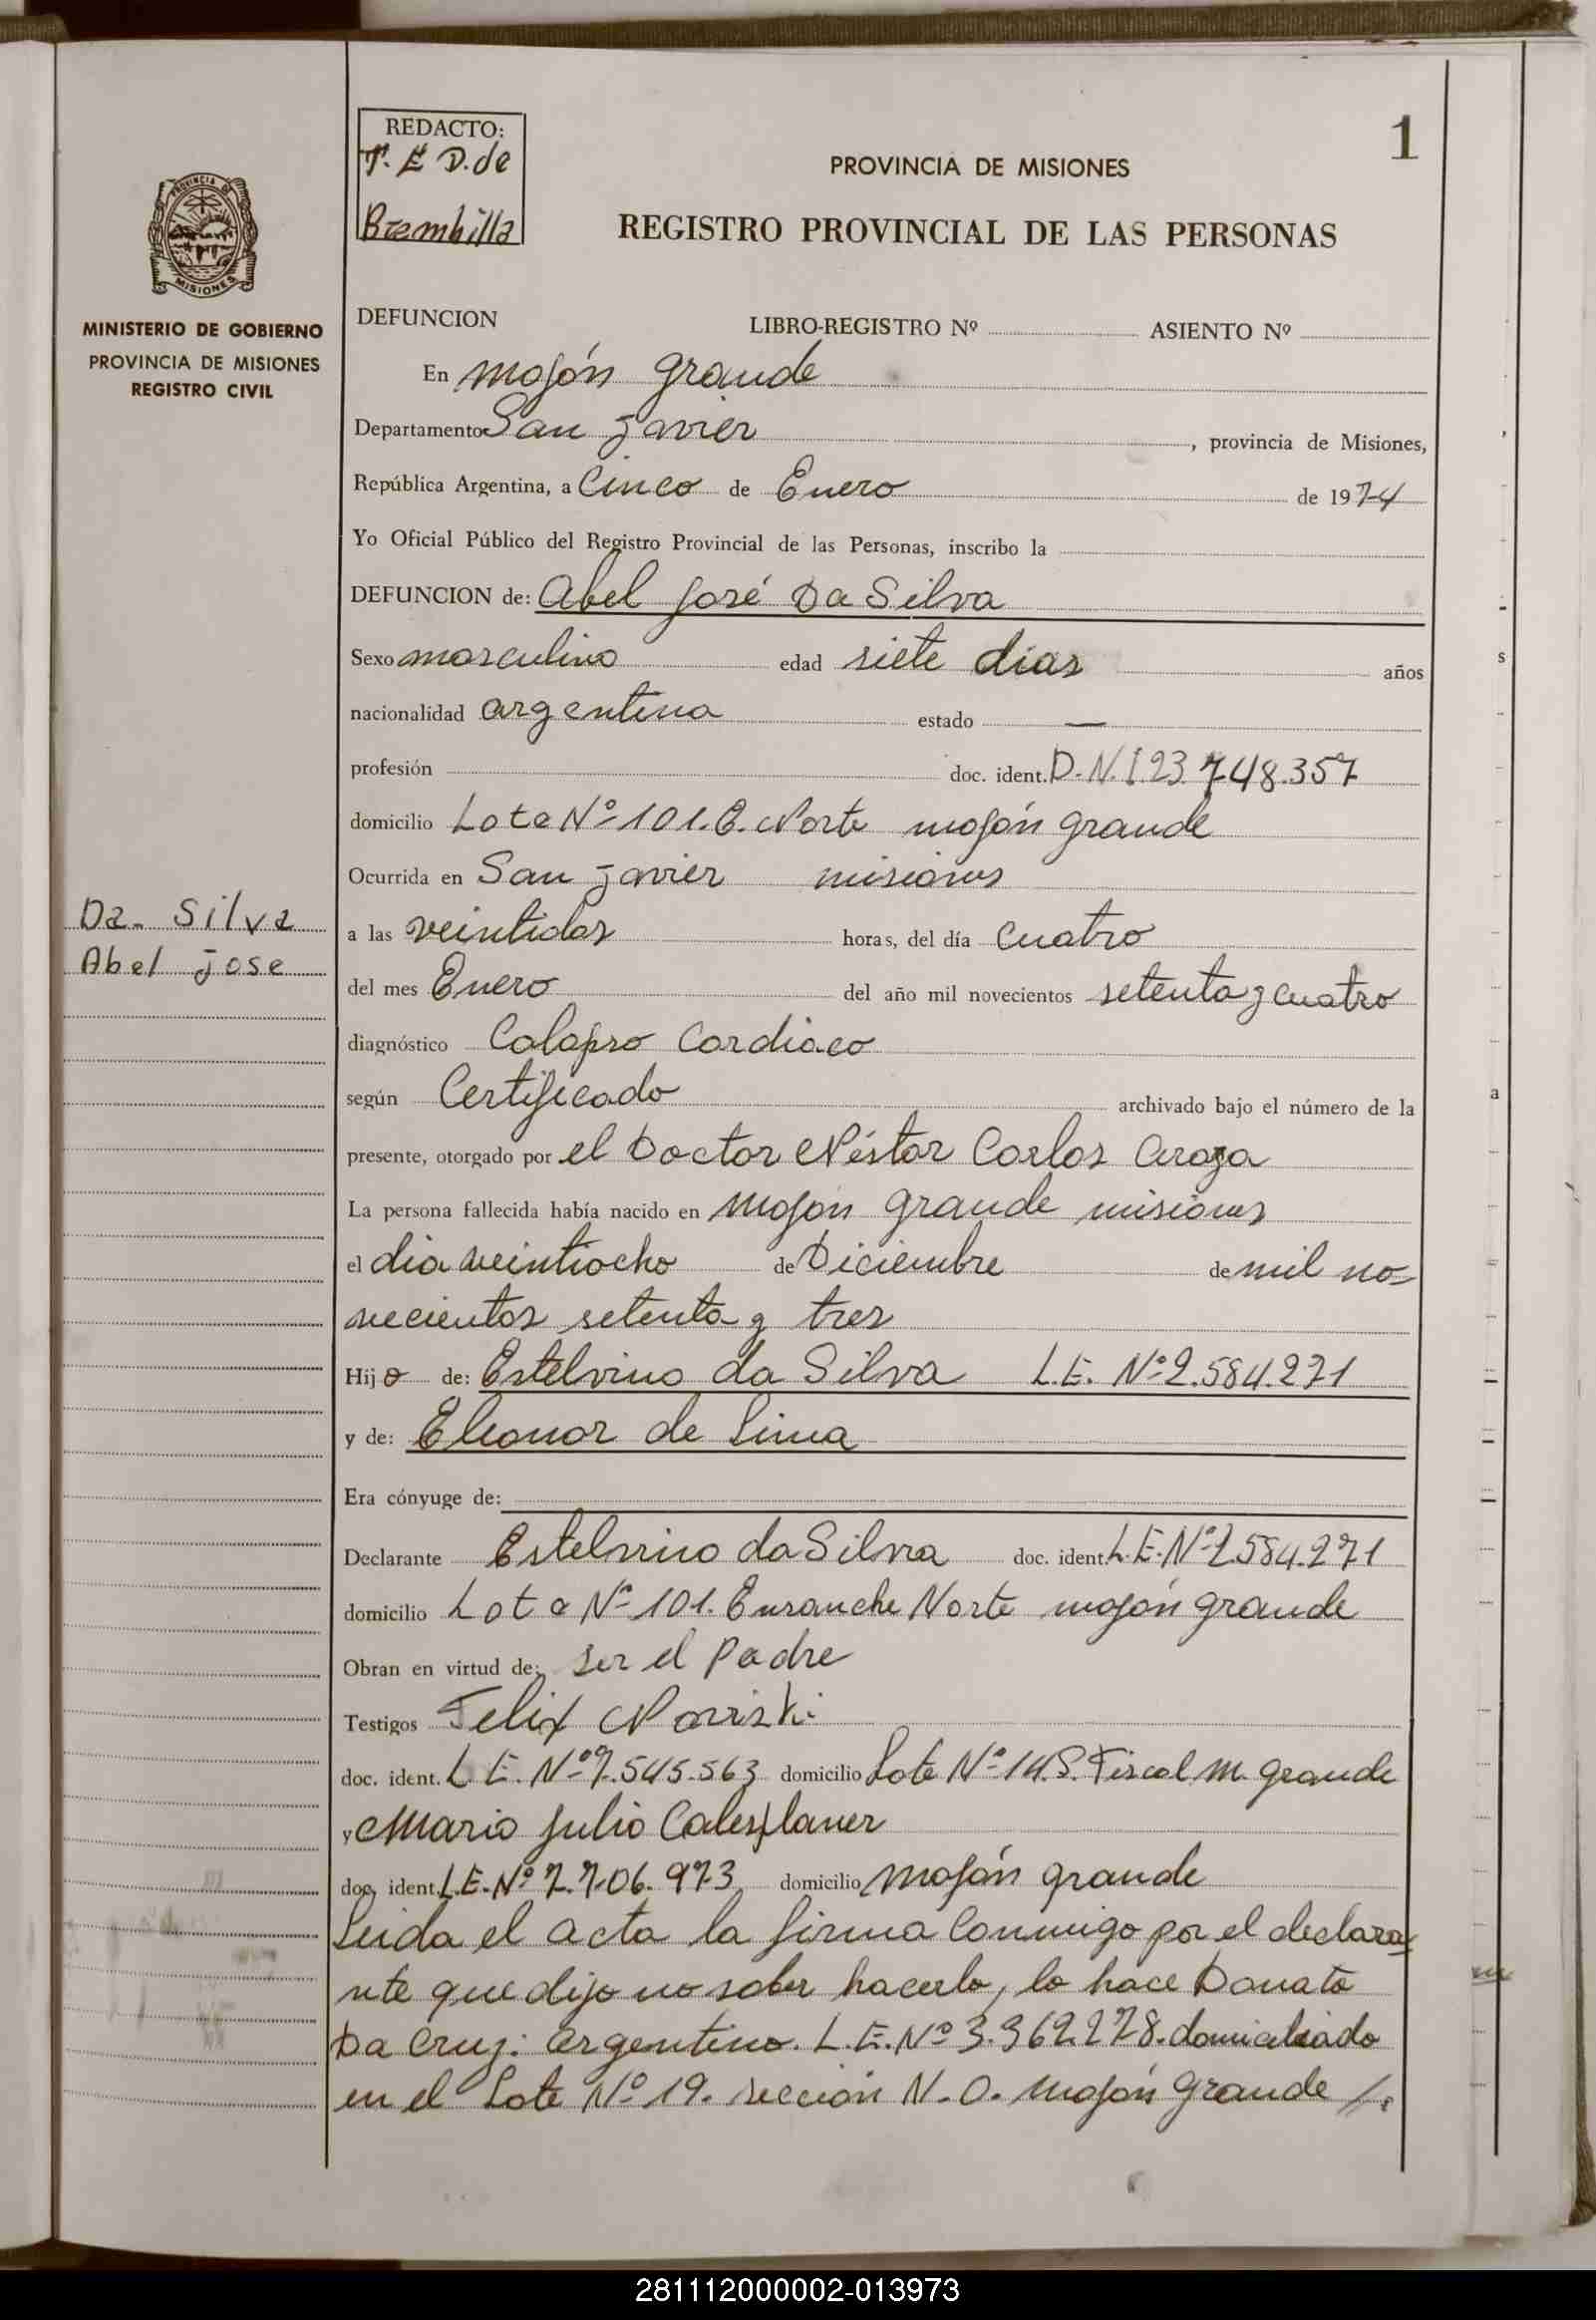 1
REDACTO:
T. E D. de
Brembilla
PROVINCIA DE MISIONES
REGISTRO PROVINCIAL DE LAS PERSONAS
PROVINCIA DE
MISIONES
MINISTERIO DE GOBIERNO
PROVINCIA DE MISIONES
REGISTRO CIVIL
DEFUNCION LIBRO-REGISTRO Nº ASIENTO Nº
En Mojón Grande
Departamento San Javier, provincia de Misiones,
República Argentina, a Cinco de Enero de 1974
Yo Oficial Público del Registro Provincial de las Personas, inscribo la
DEFUNCION de: Abel José Da Silva
Sexo masculino edad siete días años
nacionalidad argentina estado —
profesión doc. ident. D.N.I. 23.748.357
domicilio Lote Nº 101. E. Norte Mojón Grande
Ocurrida en San Javier Misiones
Da. Silva
Abel Jose
a las veintidos horas, del día Cuatro
del mes Enero del año mil novecientos setenta y cuatro
diagnóstico Colapso Cardiaco
según Certificado archivado bajo el número de la
presente, otorgado por el Doctor Néstor Carlos
La persona fallecida había nacido en Mojón Grande Misiones
el dia veintiocho de Diciembre de mil no=
vecientos setenta y tres
Hijo de: Estelvino da Silva L.E. Nº 2.584.271
y de: Eleonor de Lima
Era cónyuge de:
Declarante Estelvino da Silva doc. ident. L.E. Nº 2.584.271
domicilio Lote Nº 101. Ensanche Norte Mojón Grande
Obran en virtud de: ser el Padre
Testigos Felix
doc. ident. L.E. Nº 7.545.563 domicilio Lote Nº 14. S. Fiscal M. Grande
y Mario Julio
doc. ident. L.E. Nº 7.706.973 domicilio Mojón Grande
Leida el acta la firma Conmigo por el declara=
nte que dijo no saber hacerlo, lo hace Donato
Da Cruz: argentino. L.E. Nº 3.362.278. domiciliado
en el Lote Nº 19. sección N.O. Mojón Grande //.
281112000002-013973